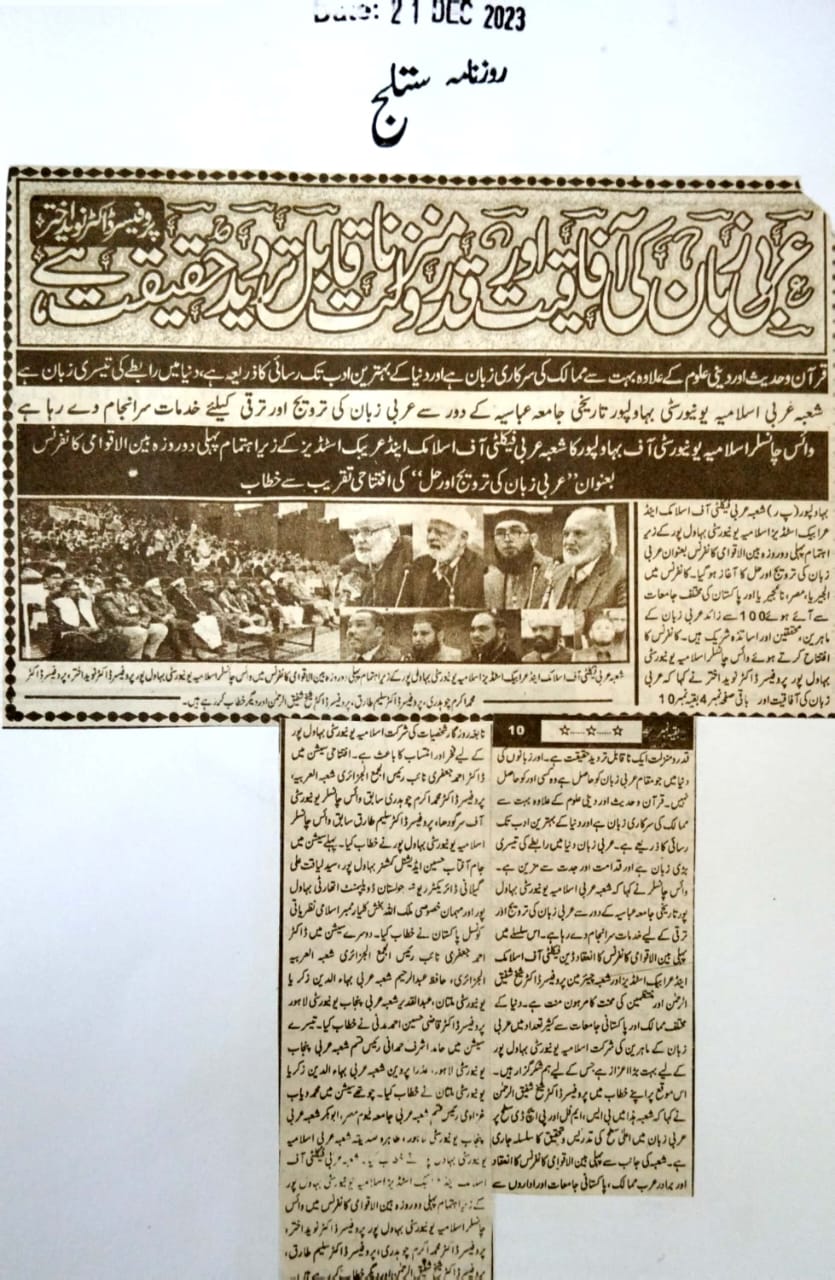 Date: 21 DEC 2023
روزنامہ ستلج
عربی زبان کی آفاقیت اور قدر و منزلت ناقابل تردید حقیقت ہے،
پروفیسر ڈاکٹر نوید اختر
قرآن وحدیث اور دینی علوم کے علاوہ بہت سے ممالک کی سرکاری زبان ہے اور دنیا کے بہترین ادب تک رسائی کا ذریعہ ہے، دنیا میں رابطے کی تیسری زبان ہے
شعبہ عربی اسلامیہ یونیورسٹی بہاولپور تاریخی جامعہ عباسیہ کے دور سے عربی زبان کی ترویج اور ترقی کیلئے خدمات سرانجام دے رہا ہے
وائس چانسلر اسلامیہ یونیورسٹی آف بہاولپور کا شعبہ عربی فیکلٹی آف اسلامک اینڈ عریبک اسٹڈیز کے زیر اہتمام پہلی دو روزہ بین الاقوامی کانفرنس
بعنوان ”عربی زبان کی ترویج اور حل“ کی افتتاحی تقریب سے خطاب
بہاولپور (پ ر) شعبہ عربی فیکلٹی آف اسلامک اینڈ
عرابیک اسٹڈیز اسلامیہ یونیورسٹی بہاول پور کے زیر
اہتمام پہلی دو روزہ بین الاقوامی کانفرنس بعنوان عربی
زبان کی ترویج اور حل کا آغاز ہو گیا۔ کانفرنس میں
الجیریا، مصر، نائجیریا اور پاکستان کی مختلف جامعات
سے آئے ہوئے 100 سے زائد عربی زبان کے
ماہرین، محققین اور اساتذہ شریک ہیں۔ کانفرنس کا
افتتاح کرتے ہوئے وائس چانسلر اسلامیہ یونیورسٹی
بہاول پور پروفیسر ڈاکٹر نوید اختر نے کہا کہ عربی
زبان کی آفاقیت اور باقی صفحہ نمبر 4 بقیہ نمبر 10
شعبہ عربی فیکلٹی آف اسلامک اینڈ عرابیک اسٹڈیز اسلامیہ یونیورسٹی بہاول پور کے زیر اہتمام پہلی دو روزہ بین الاقوامی کانفرنس میں وائس چانسلر اسلامیہ یونیورسٹی بہاول پور پروفیسر ڈاکٹر نوید اختر، پروفیسر ڈاکٹر
محمد اکرم چوہدری، پروفیسر ڈاکٹر سلیم طارق، پروفیسر ڈاکٹر شیخ شفیق الرحمٰن اور دیگر خطاب کر رہے ہیں۔
بقیہ نمبر 10
قدر و منزلت ایک ناقابل تردید حقیقت ہے۔ اور زبانوں کی
دنیا میں جو مقام عربی زبان کو حاصل ہے وہ کسی اور کو حاصل
نہیں۔ قرآن و حدیث اور دینی علوم کے علاوہ بہت سے
ممالک کی سرکاری زبان ہے اور دنیا کے بہترین ادب تک
رسائی کا ذریعے ہے۔ عربی زبان دنیا میں رابطے کی تیسری
بڑی زبان ہے اور قدامت اور جدت سے مزین ہے۔
وائس چانسلر نے کہا کہ شعبہ عربی اسلامیہ یونیورسٹی بہاول
پور تاریخی جامعہ عباسیہ کے دور سے عربی زبان کی ترویج اور
ترقی کے لیے خدمات سرانجام دے رہا ہے۔ اس سلسلے میں
پہلی بین الاقوامی کانفرنس کا انعقاد ڈین فیکلٹی آف اسلامک
اینڈ عرابیک اسٹڈیز اور شعبہ چیئرمین پروفیسر ڈاکٹر شیخ شفیق
الرحمٰن اور منتظمین کی محنت کا مرہون منت ہے۔ دنیا کے
مختلف ممالک اور پاکستانی جامعات سے کثیر تعداد میں عربی
زبان کے ماہرین کی شرکت اسلامیہ یونیورسٹی بہاول پور
کے لیے بہت بڑا اعزاز ہے جس کے لیے ہم شکر گزار ہیں۔
اس موقع پر اپنے خطاب میں پروفیسر ڈاکٹر شیخ شفیق الرحمٰن
نے کہا کہ شعبہ ہذا میں بی ایس، ایم فل اور پی ایچ ڈی سطح پر
عربی زبان میں اعلیٰ سطح کی تدریس و تحقیق کا سلسلہ جاری
ہے۔ شعبہ کی جانب سے پہلی بین الاقوامی کانفرنس کا انعقاد
اور برادر عرب ممالک، پاکستانی جامعات اور اداروں سے
نابغہ روزگار شخصیات کی شرکت اسلامیہ یونیورسٹی بہاول پور
کے لیے فخر اور انتساب کا باعث ہے۔ افتتاحی سیشن میں
ڈاکٹر احمد جعفری نائب رئیس المجمع الجزائری شعبہ العربیہ،
پروفیسر ڈاکٹر محمد اکرم چوہدری سابق وائس چانسلر یونیورسٹی
آف سرگودھا، پروفیسر ڈاکٹر سلیم طارق سابق وائس چانسلر
اسلامیہ یونیورسٹی بہاول پور نے خطاب کیا۔ پہلے سیشن میں
جام آفتاب حسین ایڈیشنل کمشنر بہاول پور، سید لیاقت علی
گیلانی ڈائریکٹر ریونیو چولستان ڈویلپمنٹ اتھارٹی بہاول
پور اور مہمان خصوصی ملک اللہ بخش کلیار ممبر اسلامی نظریاتی
کونسل پاکستان نے خطاب کیا۔ دوسرے سیشن میں ڈاکٹر
احمد جعفری نائب رئیس المجمع الجزائری شعبہ العربیہ
الجزائری، حافظ عبدالرحیم شعبہ عربی بہاء الدین زکریا
یونیورسٹی ملتان، عبدالقدیر شعبہ عربی پنجاب یونیورسٹی لاہور
پروفیسر ڈاکٹر قاضی حسین احمد مدنی نے خطاب کیا۔ تیسرے
سیشن میں حامد اشرف ہمدانی رئیس قسم شعبہ عربی پنجاب
یونیورسٹی لاہور، عذرا پروین شعبہ عربی بہاء الدین زکریا
یونیورسٹی ملتان نے خطاب کیا۔ چوتھے سیشن میں محمد دیاب
غزاوی رئیس قسم شعبہ عربی جامعہ فیوم مصر، ابوبکر شعبہ عربی
پنجاب یونیورسٹی لاہور، طاہرہ صدیقہ شعبہ عربی اسلامیہ
یونیورسٹی بہاول پور نے خطاب کیا۔ شعبہ عربی فیکلٹی آف
اسلامک اینڈ عرابیک اسٹڈیز اسلامیہ یونیورسٹی بہاول پور
کے زیر اہتمام پہلی دو روزہ بین الاقوامی کانفرنس میں وائس
چانسلر اسلامیہ یونیورسٹی بہاول پور پروفیسر ڈاکٹر نوید اختر،
پروفیسر ڈاکٹر محمد اکرم چوہدری، پروفیسر ڈاکٹر سلیم طارق،